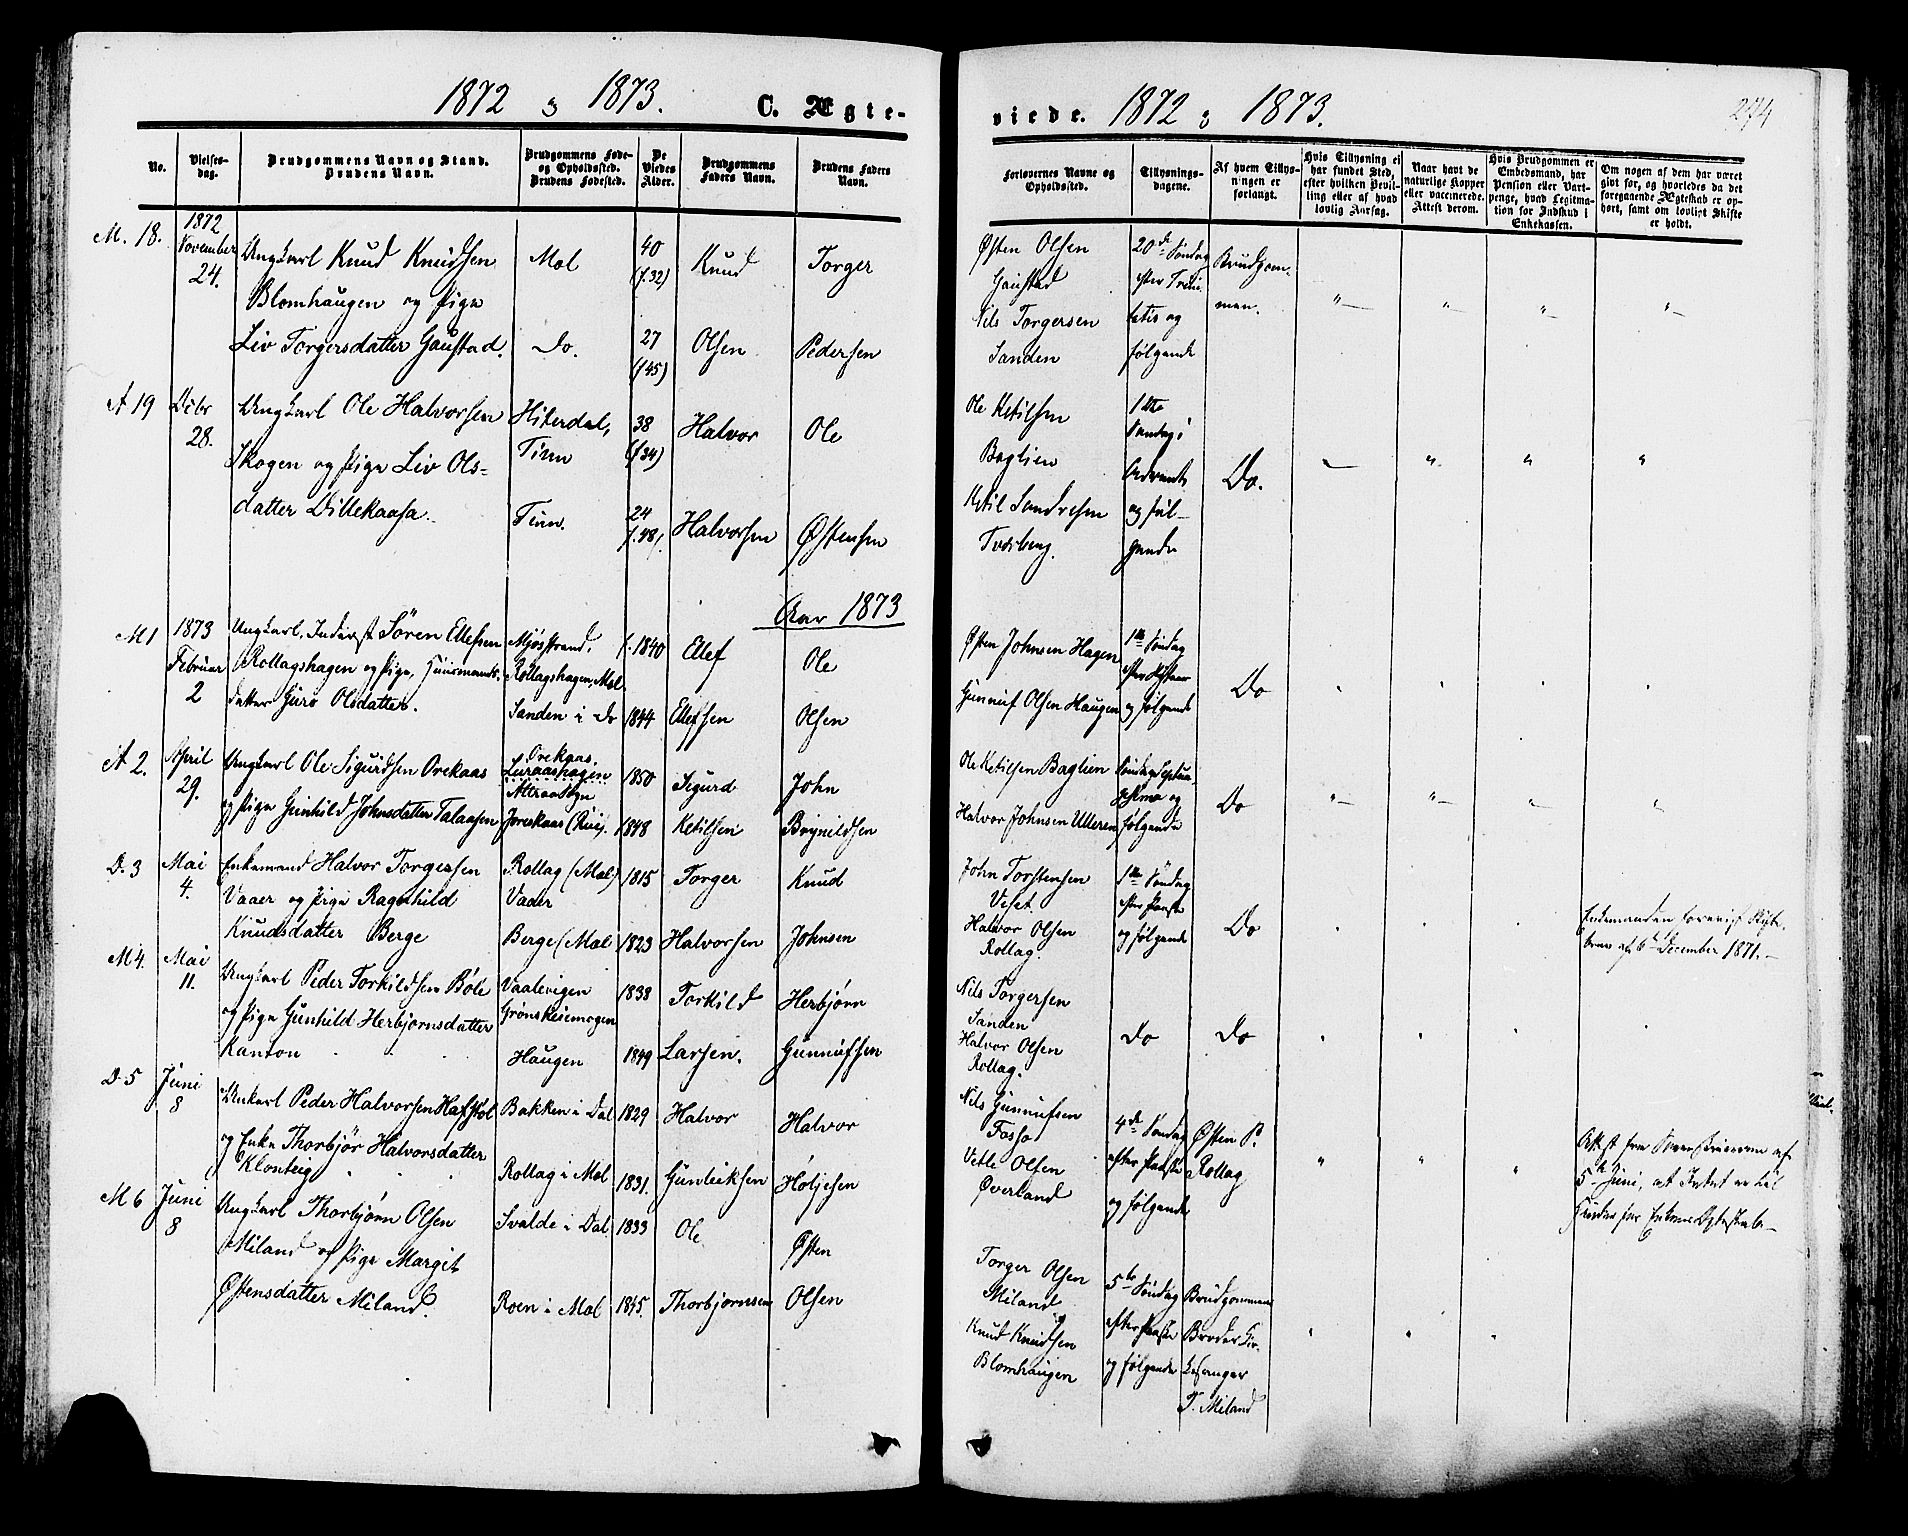 1872 & 1873. C. Ægte-
No.
Vielses-
dag.
Brudgommens Navn og Stand.
Brudens Navn.
Brudgommens Føde-
og Opholdssted.
Brudens Fødested.
De
Viedes
Alder.
Brudgommens
Faders Navn.
Brudens Faders
Navn.
M. 18.
1872
November
24.
Ungkarl Knud Knudsen
Blomhaugen og Pige
Liv Torgersdatter Gaustad.
Mæl
Do.
40
(f.32)
27
(f45)
Knud
Olsen
Torger
Pedersen
A 19
Decbr
28.
Ungkarl Ole Halvorsen
Skogen og Pige Liv Ols-
datter Dillekaasa.
Hiterdal,
Tinn
Tinn.
38
(f34)
24
f.48
Halvor
Halvorsen
Ole
Østensen
Aar 1873
M 1
1873
Februar
2
Ungkarl, Inderst Sören Ellefsen
Rollagshagen og Pige, Huusmands-
datter Guro Olsdatter.
Mjøsstrand.
Rollagshagen, Mæl
Sanden i Do
f. 1840
1844
Ellef
Ellefsen
Ole
Olsen
A 2.
April
29.
Ungkarl Ole Sigurdsen Orekaas
og Pige Gunhild Johnsdatter Talaasen
Orekaas.
Luraashagen
Attraadsgn
Joreskaas (Rui).
1850
1848
Sigurd
Ketilsen
John
Brynildsen
D. 3
Mai
4.
Enkemand Halvor Torgersen
Vaaer og Pige Ragnhild
Knudsdatter Berge
Rollag (Mæl)
Vaaer
Berge (Mæl
1815
1823
Torger
Halvorsen
Knud
Johnsen
M 4.
Mai
11.
Ungkarl Peder Torkildsen Bóle
og Pige Gunhild Herbjørnsdatter
Kanton
Vaalevigen
Grönskeiemogen
Haugen
1838
1849
Torkild
Larsen.
Herbjørn
Gunnufsen
D. 5
Juni
8
Unkarl Peder Halvorsen Hafsköl
og Enke Thorbjör Halvorsdatter
Klonteig
Bakken i Dal
Rollag i Mæl
1829
1831.
Halvor
Gunleiksen
Halvor
Höljesen
M 6
Juni
8
Ungkarl Thorbjørn Olsen
Miland og Pige Margit
Østensdatter Miland.
Svalde i Dal
Roen i Mæl
1833
1845.
Ole
Thorbjørnsen
Østen
Olsen
viede. 1872 & 1873.
274
Forlovernes Navne og
Opholdssted.
Tillysnings-
dagene.
Af hvem Tillys-
ningen er
forlangt.
Hvis Tillysning ei
har fundet Sted,
efter hvilken Bevil-
ling eller af hvad
lovlig Aarsag.
Naar havt de
naturlige Kopper
eller vaccinerede.
Attest derom.
Hvis Brudgommen er
Embedsmand, har
Pension eller Vart-
penge, hvad Legitima-
tion for Indskud i
Enkekassen.
Om nogen af dem har været
givt før, og hvorledes da det
foregaaende Ægteskab er op-
hørt, samt om lovligt Skifte
er holdt.
Østen Olsen
Gaustad
Nils Torgersen
Sanden
20de Søndag
efter Trini-
tatis og
følgende
Brudgom-
men.
Ole Ketilsen
Baglien
Ketil Sondresen
Tvedberg.
1ste
Søndag i
Advent
og føl-
gende
Do.
Østen Johnsen Hagen
Gunnuf Olsen Haugen
1ste Søndag
efter Nytaar
og følgende
Do
Ole Ketilsen Baglien
Halvor Johnsen Ulleren
Søndag Septua-
gesima og
følgende
Do
John Torstensen
Veset.
Halvor Olsen
Rollag.
1ste Søndag
efter Paaske
og følgende
Do
Enkemanden foreviist Skifte-
brev af 6te December 1871.
Nils Torgersen
Sanden
Halvor Olsen
Rollag.
Do
Do
Nils Gunnufsen
Fosso
Vetle Olsen
Øverland
4de Søndag
efter Paaske
og følgende
Østen P.
Rollag
Attest fra Skifteforvalteren af
5te Juni, at Intet er til
Hinder for Enkens Ægteskab
Torger Olsen
Miland
Knud Knudsen
Blomhaugen
5te Søndag
efter Paaske
og følgende
Brudgommens
Broder Kir-
kesanger
T. Miland